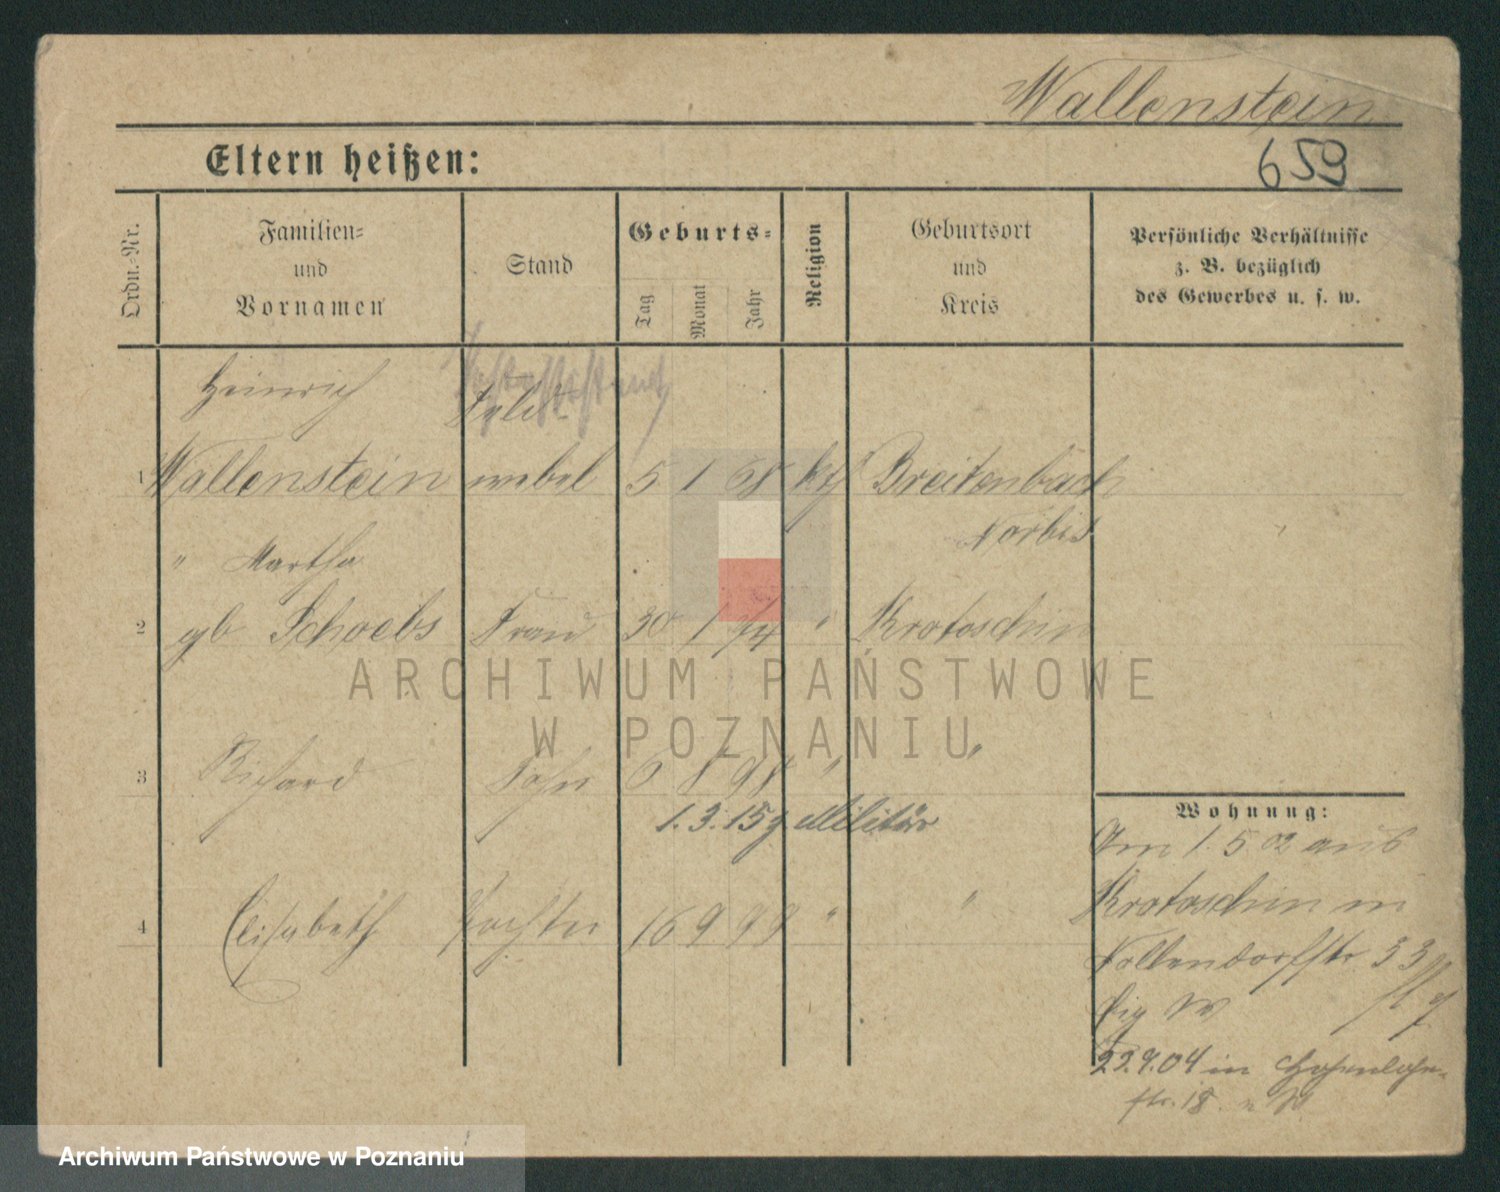 Wallenstein
Eltern heißen:
659
Ordn.-Nr.
Familien-
und
Vornamen
Stand
Geburts-
Tag
Monat
Jahr
Religion
Geburtsort
und
Kreis
Persönliche Verhältnisse
z. B. bezüglich
des Gewerbes u. s. w.
Heinrich Feld-
1 Wallenstein webel 5 1 68 kth Breitenbach
Worbis
" Martha
2 gb Schoebs Frau 30 1 74 " Krotoschin
ARCHIWUM PAŃSTWOWE
W POZNANIU
3 Richard Sohn 6 8 98 " "
1.3.15 z Militär
Wohnung:
Am 1.5 02 aus
4 Elisabeth Tochter 16 9 99 " "
Krotoschin in
Nollendorfstr 33
W
22.9.04 in Hohenlohe-
str. 18.
Archiwum Państwowe w Poznaniu